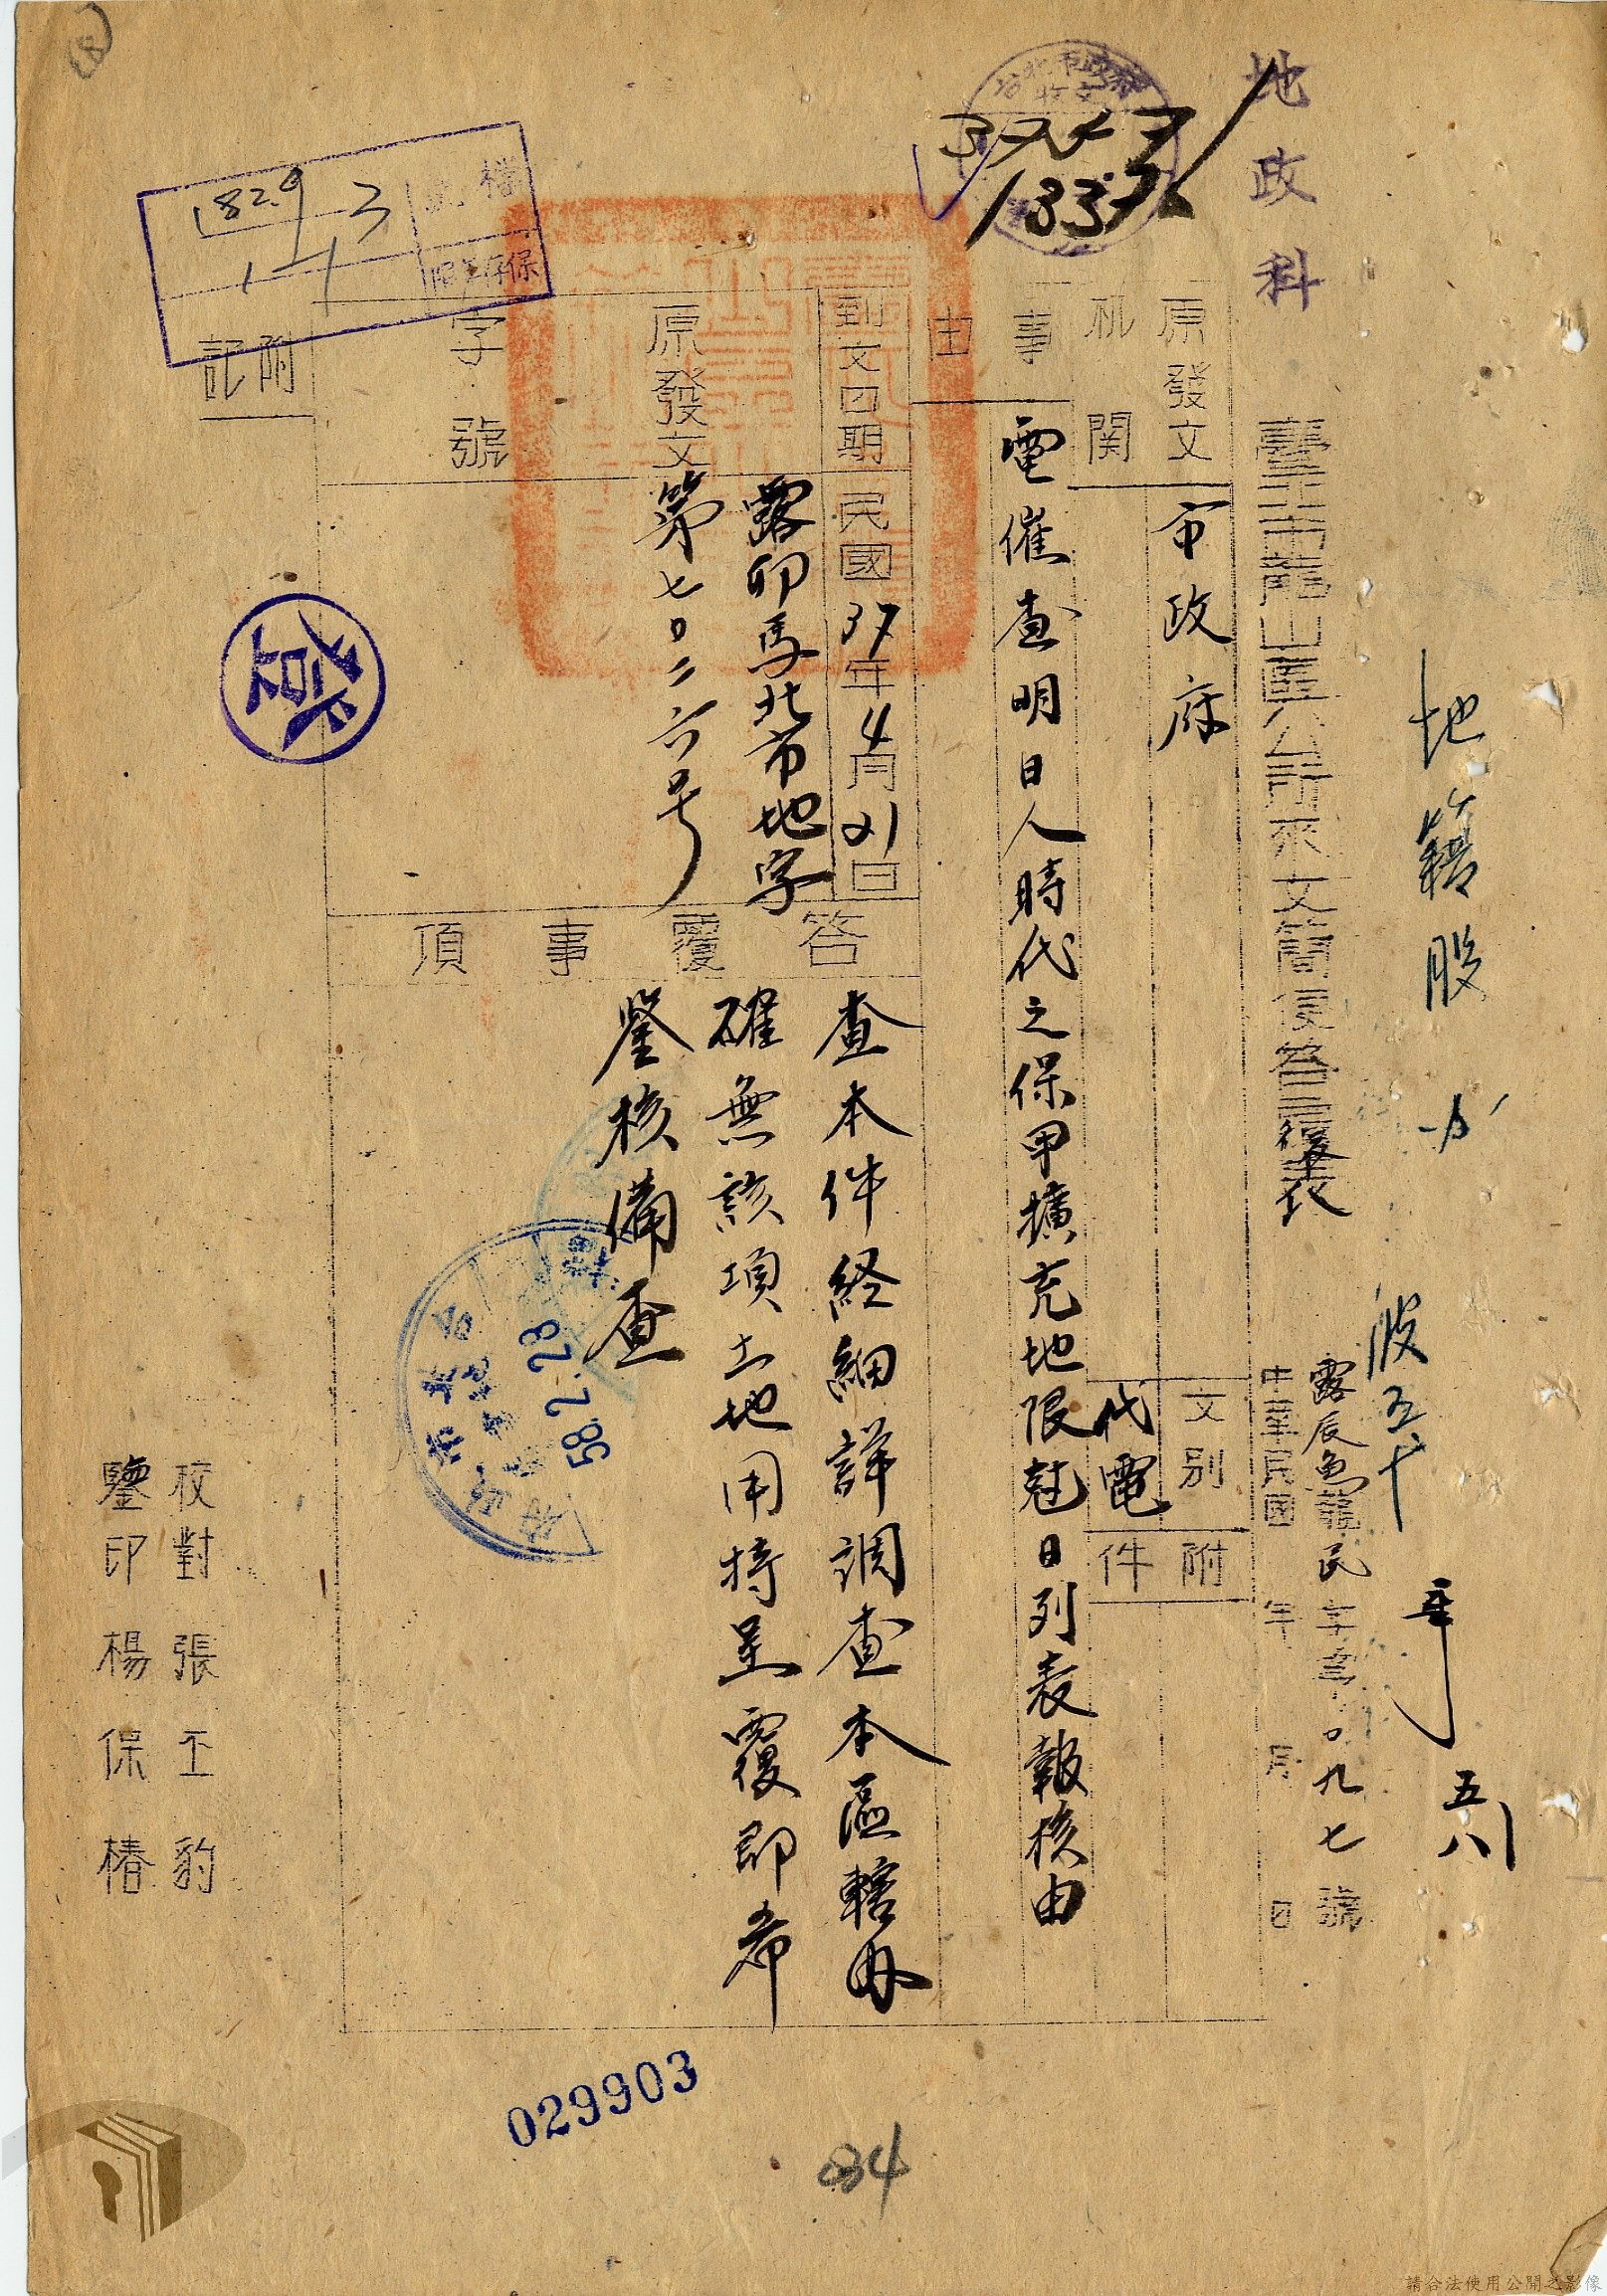 地政科
地籍股
五八
臺北市龍山區公所來文簡便答覆表
露辰魚龍民字第一〇九七號
中華民國　年　月　日
原發文机関
市政府
文別
代電
附件
事由
電催查明日人時代之保甲擴充地限尅日列表報核由
到文日期
民國37年4月21日
原發文字號
露卯馬北市地字
第七〇二六号
答覆事項
查本件経細詳調查本區轄內
確無該項土地用特呈覆即希
鑒核備查
附記
校對 張玉豹
鑒印 楊保椿
檔號
182.9
3
保存年限
58.7.28
029903
034
請合法使用公開之影像